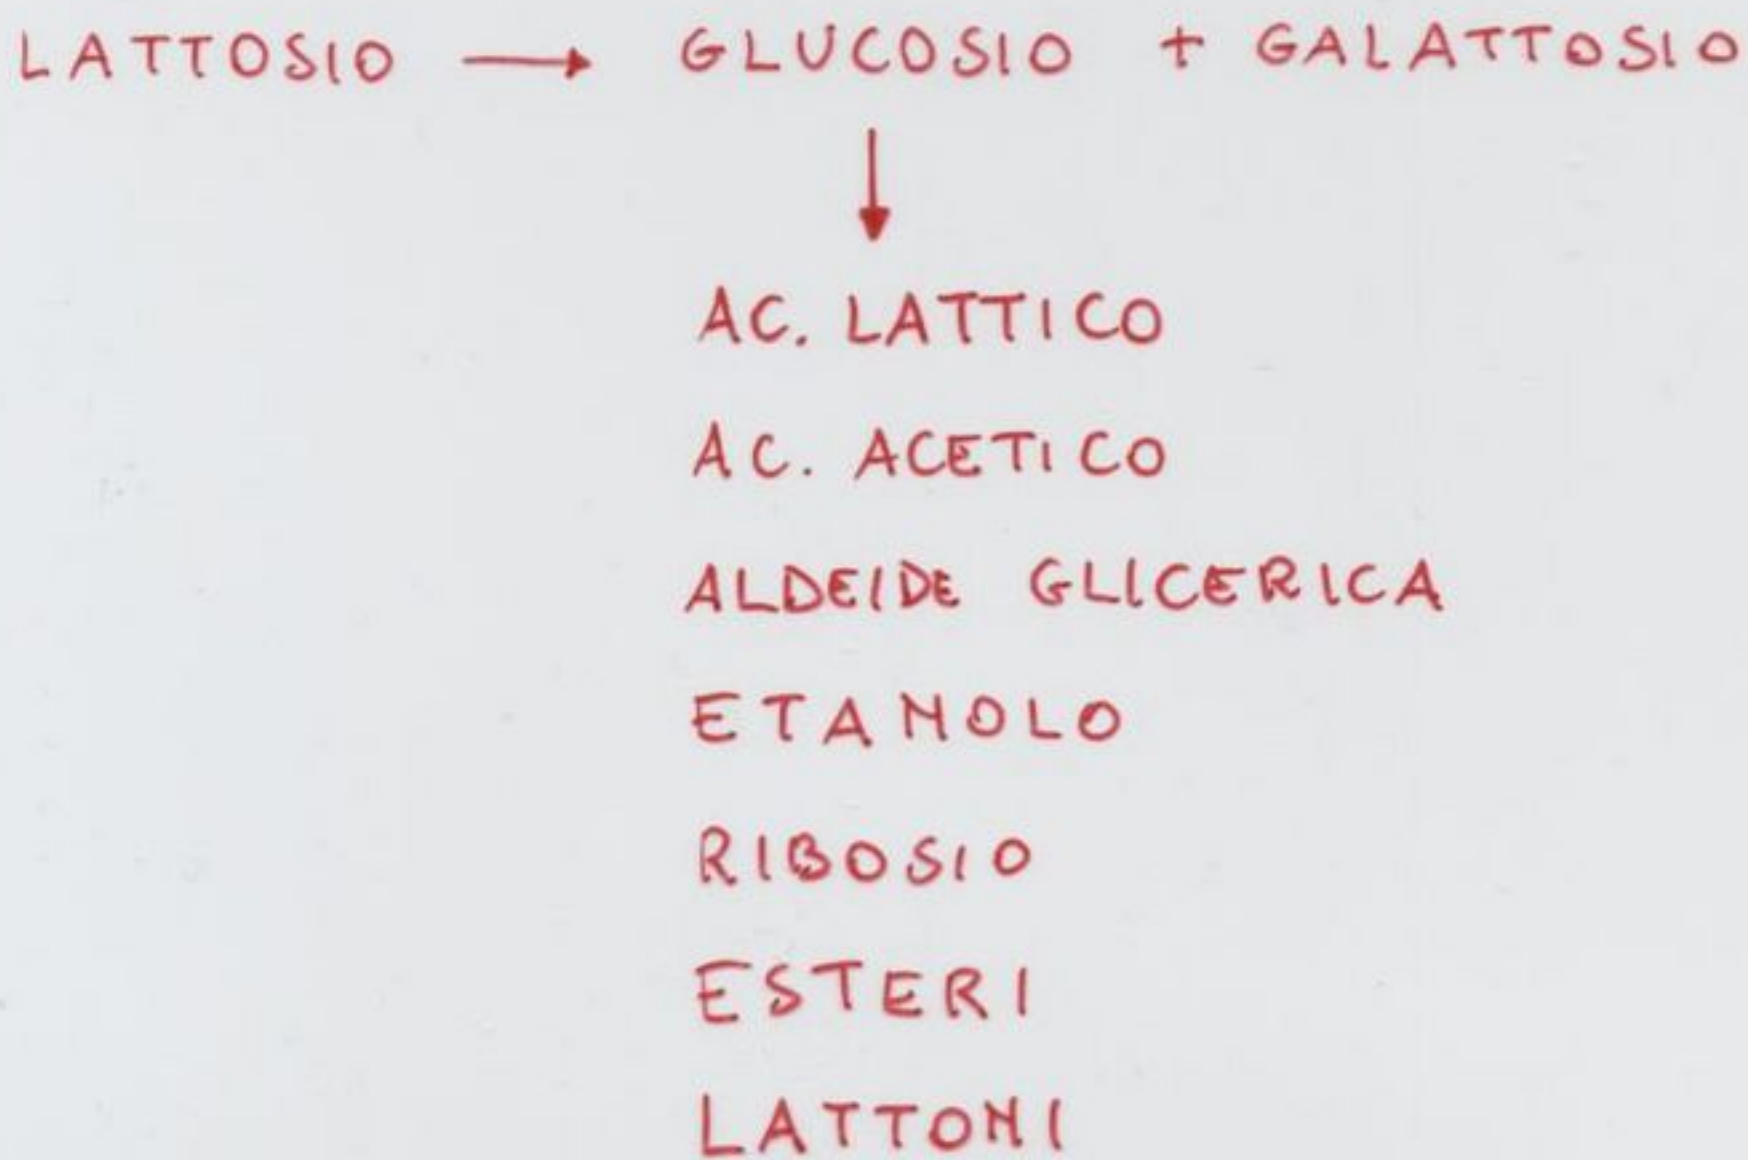 LATTOSIO → GLUCOSIO + GALATTOSIO
↓
AC. LATTICO
AC. ACETICO
ALDEIDE GLICERICA
ETANOLO
RIBOSIO
ESTERI
LATTONI